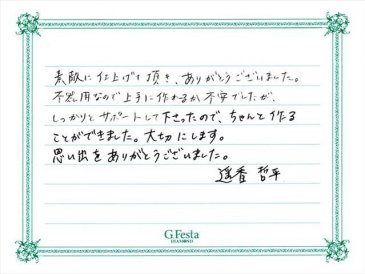 素敵に仕上げて頂き、ありがとうございました。
不器用なので上手に作れるか不安でしたが、
しっかりとサポートして下さったので、ちゃんと作る
ことができました。大切にします。
思い出をありがとうございました。
遥香 哲平
G.Festa
DIAMOND